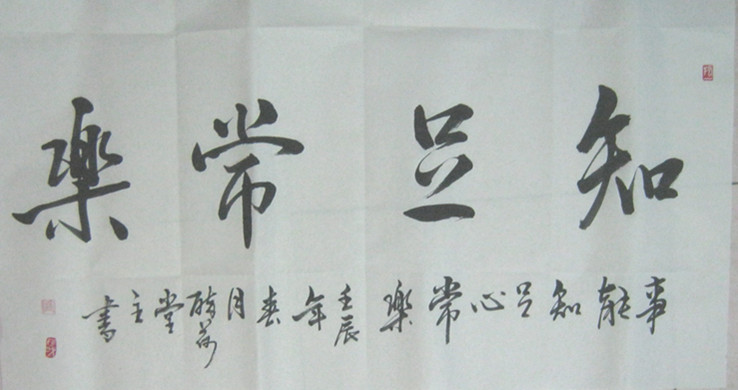 知足常樂
事能知足心常樂 壬辰年春月 醉荷堂主書